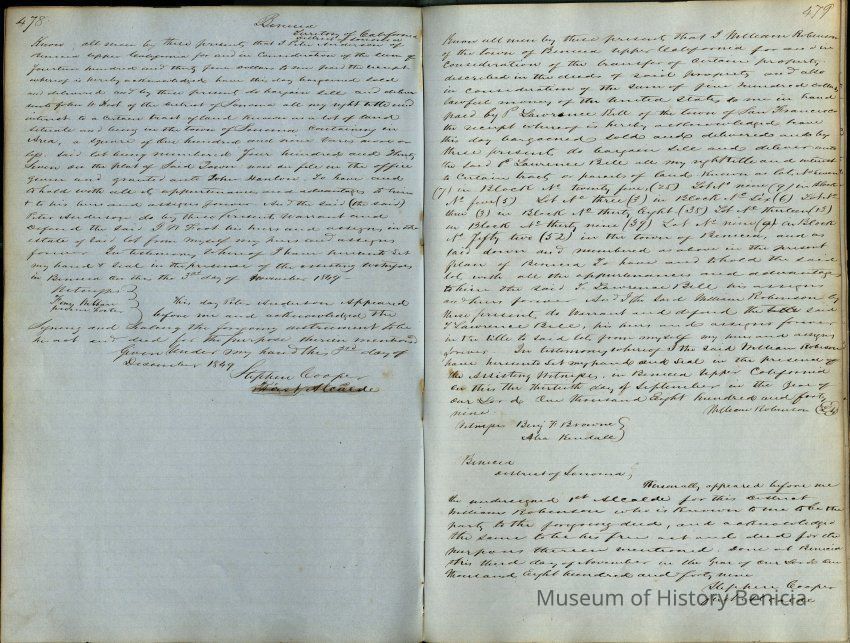 478
Benicia
Territory of California
District of Sonoma
Know all men by these presents that I Peter Anderson of
Benicia Upper California for and in Consideration of the Sum of
fourteen hundred and thirty four dollars to me paid the receipt
whereof is hereby acknowledged have this day bargained Sold
and delivered and by these present do bargain Sell and deliver
unto John W Foot of the district of Sonoma all my right title and
interest to a Certain tract of land Known as a lot of land
Situate and being in the town of Sonoma Containing in
Area, a Square of One hundred and nine Varas more or
less Said lot being numbered Four hundred and Thirty
Seven on the plat of Said Town now on file in the office
and granted unto John To have and
to hold with all its appurtenances and advantages to him
& to his heirs and assigns forever And the Said (the Said)
Peter Anderson do by these present Warrant and
defend the Said J W Foot his heirs and assigns in the
estate of Said lot from myself my heirs and assigns
forever. In testimony where of I have hereunto Set
my hand & Seal in the presence of the assisting witnesses
in Benicia on this the 3rd day of November 1849
Witnesses
This day Peter Anderson Appeared
before me and acknowledged the
Signing and Sealing the forgoing instrument to be
his act and deed for the purpose therein mentioned
Given Under my hand this 3rd day of
December 1849
Stephen Cooper
First Alcalde
479
Know all men by these presents that I William Robinson
of the town of Benicia Upper California for and in
consideration of the transfer of certain property
described in the deeds of said property and also
in consideration of the Sum of five hundred dollars
lawful money of the United States to me in hand
paid by T Lawrence Bell of the town of San Francisco
the receipt whereof is hereby acknowledged have
this day bargained Sold and delivered and by
these presents do bargain Sell and deliver unto
the Said T Lawrence Bell all my right title and interest
to Certain tracts or parcels of land Known as lot No Seven
(7) in Block No twenty five (25) Lot No nine (9) in Block
No five (5) Lot No three (3) in Block No Six (6) Lot No
three (3) in Block No thirty Eight (38) Lot No thirteen (13)
in Block No thirty nine (39) Lot No nine (9) in Block
No fifty two (52) in the town of Benicia, as
laid down and numbered as above in the present
plan of Benicia To have and to hold the said
lots with all the appurtenances and advantages
to him the said T Lawrence Bell his assigns
and heirs forever. And I the Said William Robinson by
these present, do Warrant and defend the title said
T Lawrence Bell, his heirs and assigns forever
in the title to said lots from myself my heirs and assigns
forever. In testimony whereof I the said William Robinson
have hereunto Set my hand and Seal in the presence of
the Assisting Witnesses, in Benicia Upper California
on this the thirtieth day of September in the year of
our Lord One thousand Eight hundred and forty
nine. William Robinson
Witnesses Benj F Browne
Asa Kendall
Benicia
District of Sonoma
Personally appeared before me
the undersigned 1st Alcalde for this District
William Robinson who is known to me to be the
party to the forgoing deed, and acknowledged
the same to be his free act and deed for the
purposes therein mentioned. Done at Benicia
this third day of November in the Year of our Lord One
thousand Eight hundred and forty nine
Stephen Cooper
First Alcalde
Museum of History Benicia